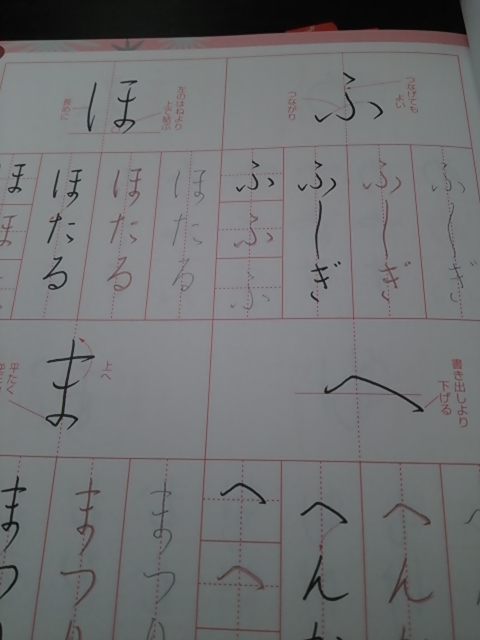 ふ
つなげても
よい
つながり
ふ〜ぎ
ふ〜ぎ
ふ〜ぎ
ふ
ふ
ふ
ほ
左のはねより
上で結ぶ
長めに
ほたる
ほたる
ほたる
ほ
ほ
へ
書き出しより
下げる
へ
へん
へ
へ
ま
上へ
平たく
まつ
まつ
まつ